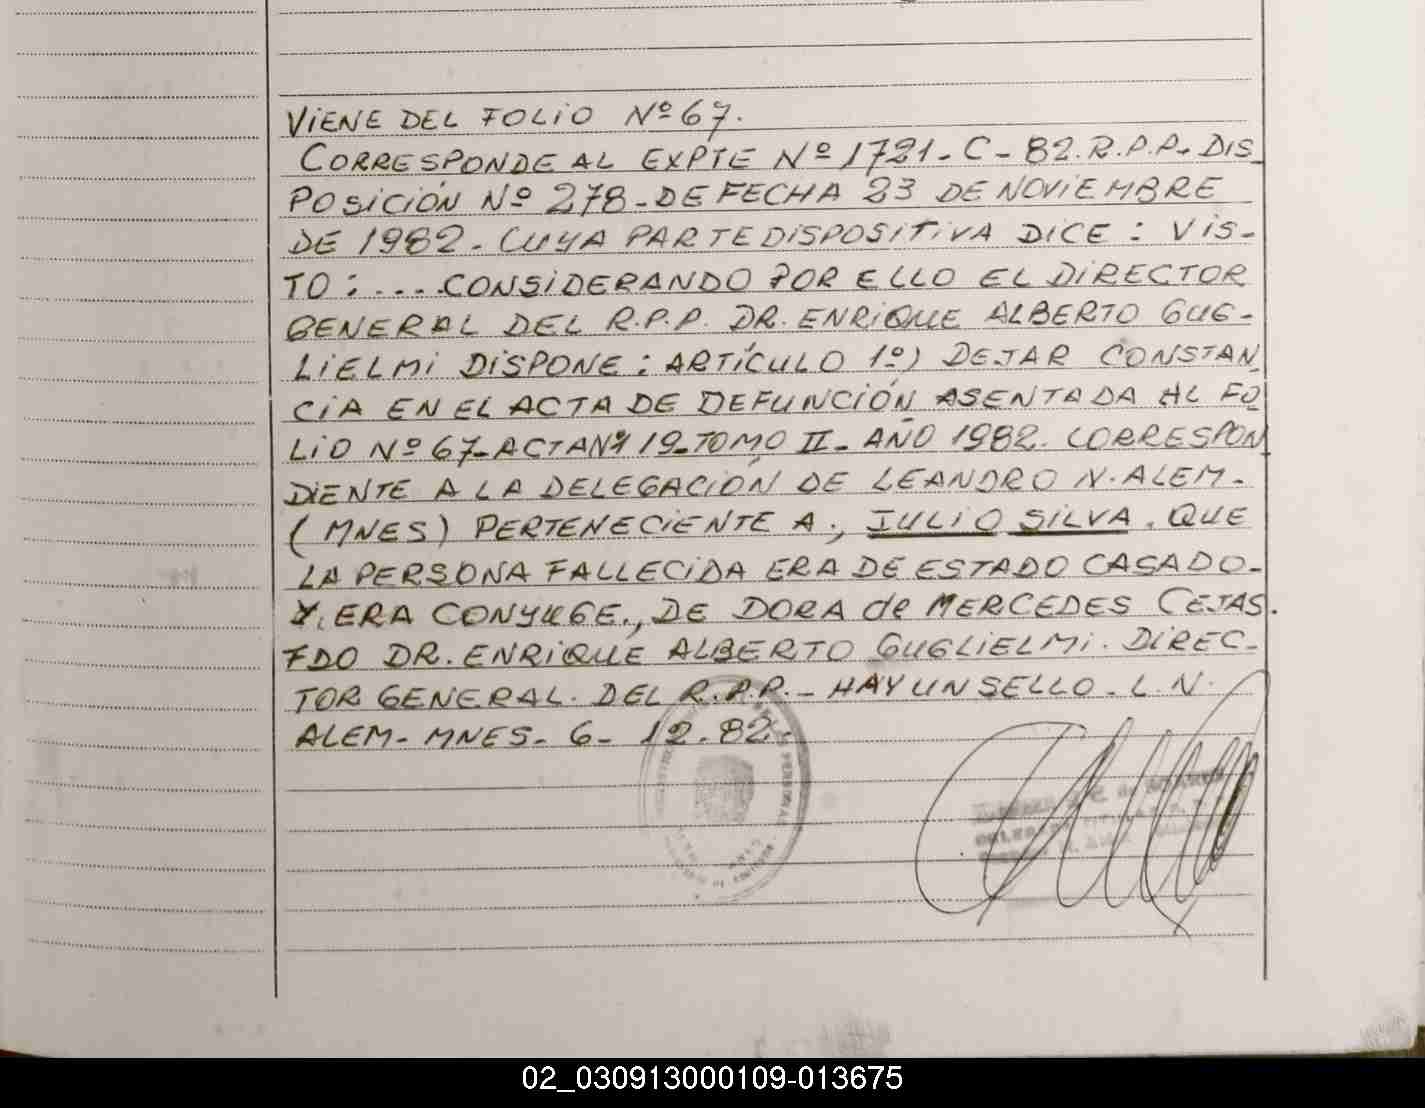 VIENE DEL FOLIO Nº 67.
CORRESPONDE AL EXPTE Nº 1721-C-82.R.P.P. DIS
POSICIÓN Nº 278-DE FECHA 23 DE NOVIEMBRE
DE 1982. CUYA PARTE DISPOSITIVA DICE: VIS-
TO: ... CONSIDERANDO POR ELLO EL DIRECTOR
GENERAL DEL R.P.P. DR. ENRIQUE ALBERTO GUG-
LIELMI DISPONE: ARTÍCULO 1º) DEJAR CONSTAN
CIA EN EL ACTA DE DEFUNCIÓN ASENTADA AL FO
LIO Nº 67-ACTA Nº 19-TOMO II-AÑO 1982. CORRESPON
DIENTE A LA DELEGACIÓN DE LEANDRO N. ALEM-
(MNES) PERTENECIENTE A., JULIO SILVA. QUE
LA PERSONA FALLECIDA ERA DE ESTADO CASADO-
Y, ERA CONYUGE., DE DORA de MERCEDES CEJAS.
FDO DR. ENRIQUE ALBERTO GUGLIELMI. DIREC-
TOR GENERAL. DEL R.P.P.- HAY UN SELLO. L.N.
ALEM- MNES- 6- 12-82.
02_030913000109-013675